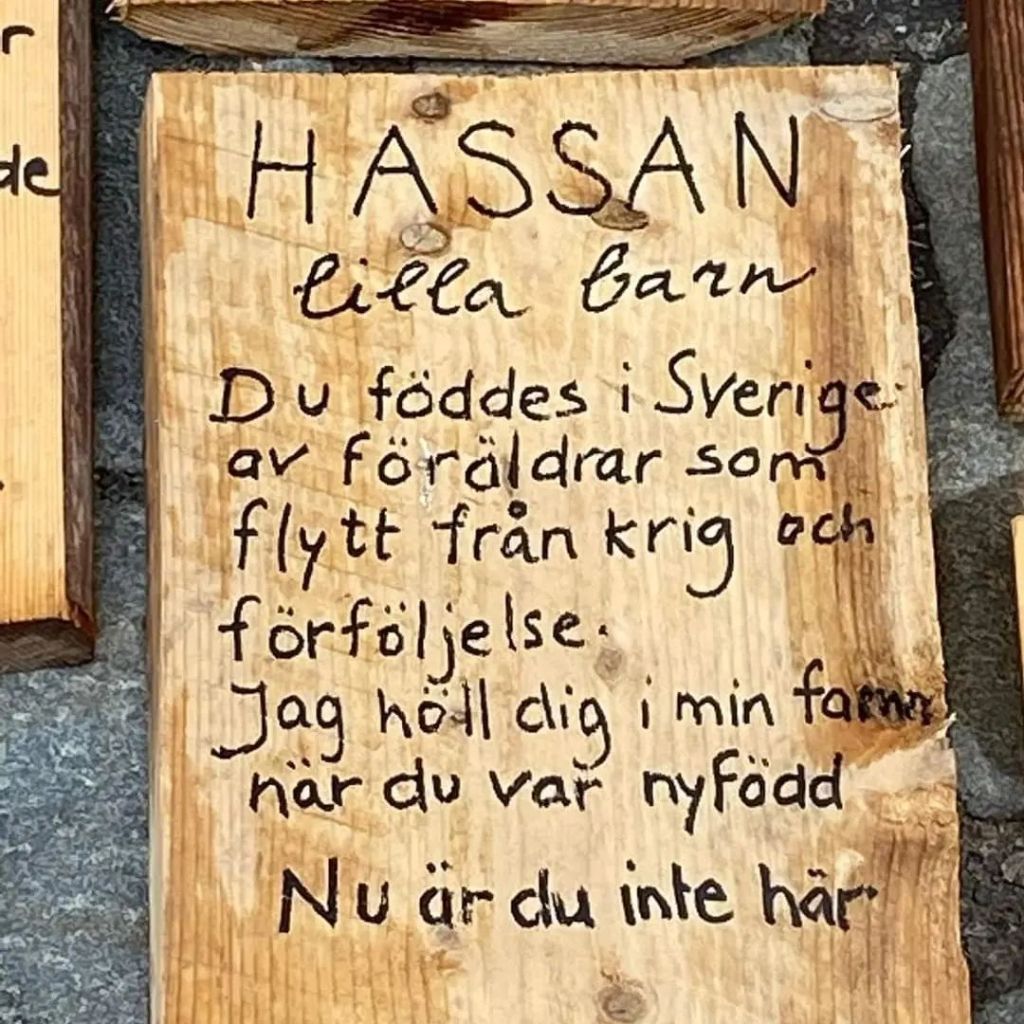 r
de
HASSAN
lilla barn
Du föddes i Sverige
av föräldrar som
flytt från krig och
förföljelse.
Jag höll dig i min famn
när du var nyfödd
Nu är du inte här